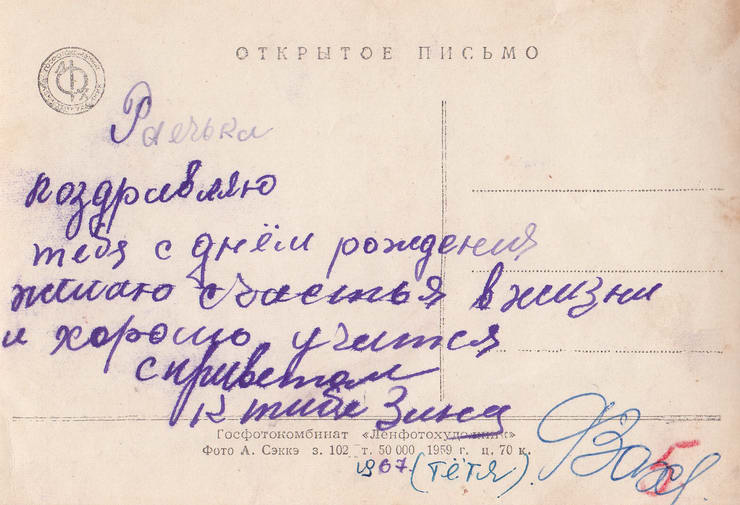 ОТКРЫТОЕ ПИСЬМО
Раечька
поздравляю
тебя с днём рождения
желаю счастья в жизни
и хорошо учится
с приветом
к тибе Зина
Госфотокомбинат «Ленфотохудожник»
Фото А. Сэккэ з. 102 т. 50 000 1959 г. ц. 70 к.
1967. (тётя).
5